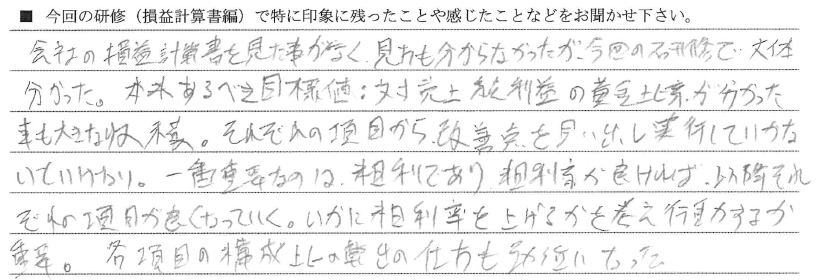 ■ 今回の研修（損益計算書編）で特に印象に残ったことや感じたことなどをお聞かせ下さい。
会社の損益計算書を見た事がなく、見方も分からなかったが、今回の研修で大体
分かった。本来あるべき目標値：対売上総利益の黄金比率が分かった
事も大きな収穫。それぞれの項目から、改善点を見い出し実行していかな
いといけない。一番重要なのは、粗利であり、粗利率が良ければ、以降それ
ぞれの項目が良くなっていく。いかに粗利率を上げるかを考え行動するか
重要。各項目の構成比の算出の仕方も勉強になった